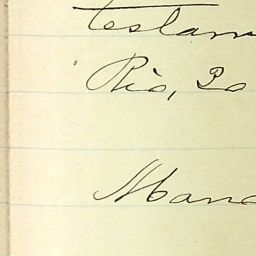 testam
Rio, 20
Mano